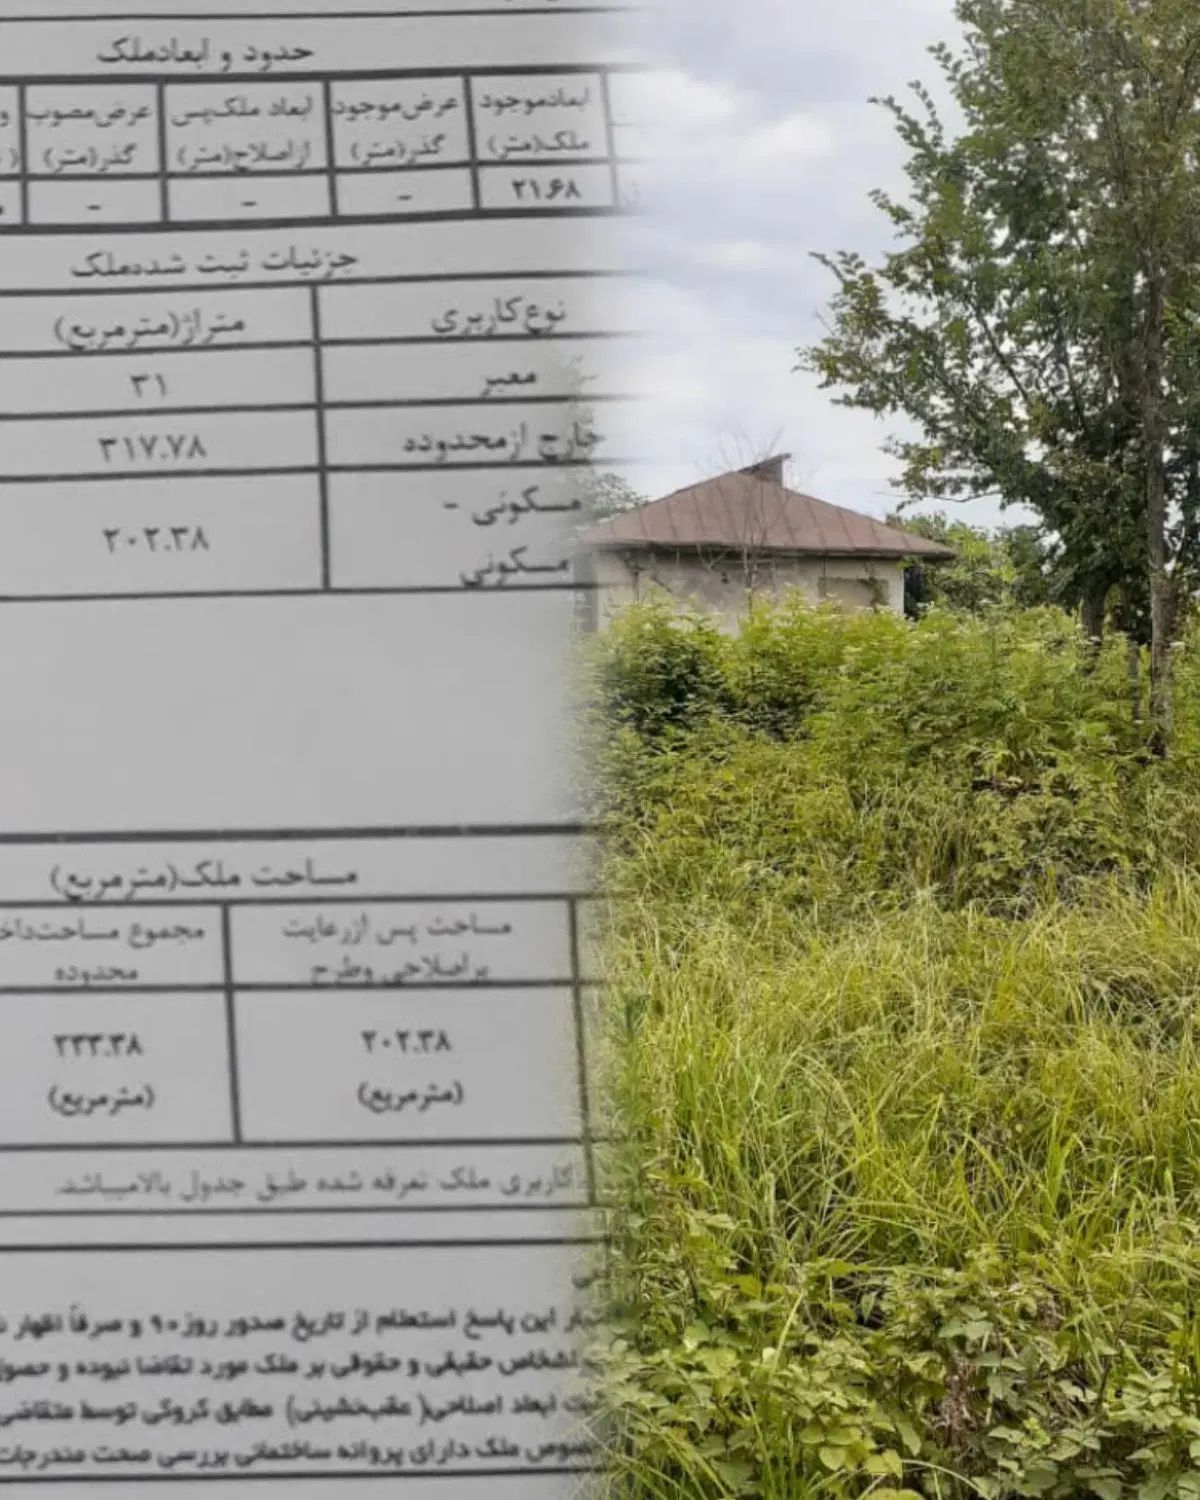 حدود و ابعادملک
ابعادموجود ملک(متر) عرض‌موجود گذر(متر) ابعاد ملک‌پس ازاصلاح(متر) عرض‌مصوب گذر(متر)
۲۱.۶۸ - - -
جزئیات ثبت شده‌ملک
نوع‌کاربری متراژ(مترمربع)
معبر ۳۱
خارج ازمحدوده ۳۱۷.۷۸
مسکونی - مسکونی ۲۰۲.۳۸
مساحت ملک(مترمربع)
مساحت پس ازرعایت براصلاحی وطرح مجموع مساحت‌داخ محدوده
۲۰۲.۳۸ ۲۳۳.۳۸
(مترمربع) (مترمربع)
کاربری ملک تعرفه شده طبق جدول بالامیباشد.
این پاسخ استعلام از تاریخ صدور روز ۹۰ و صرفاً اظهار
اشخاص حقیقی و حقوقی بر ملک مورد تقاضا نبوده و حصول
ابعاد اصلاحی( عقب‌نشینی) مطابق کروکی توسط متقاضی
ملک دارای پروانه ساختمانی بررسی صحت مندرجات